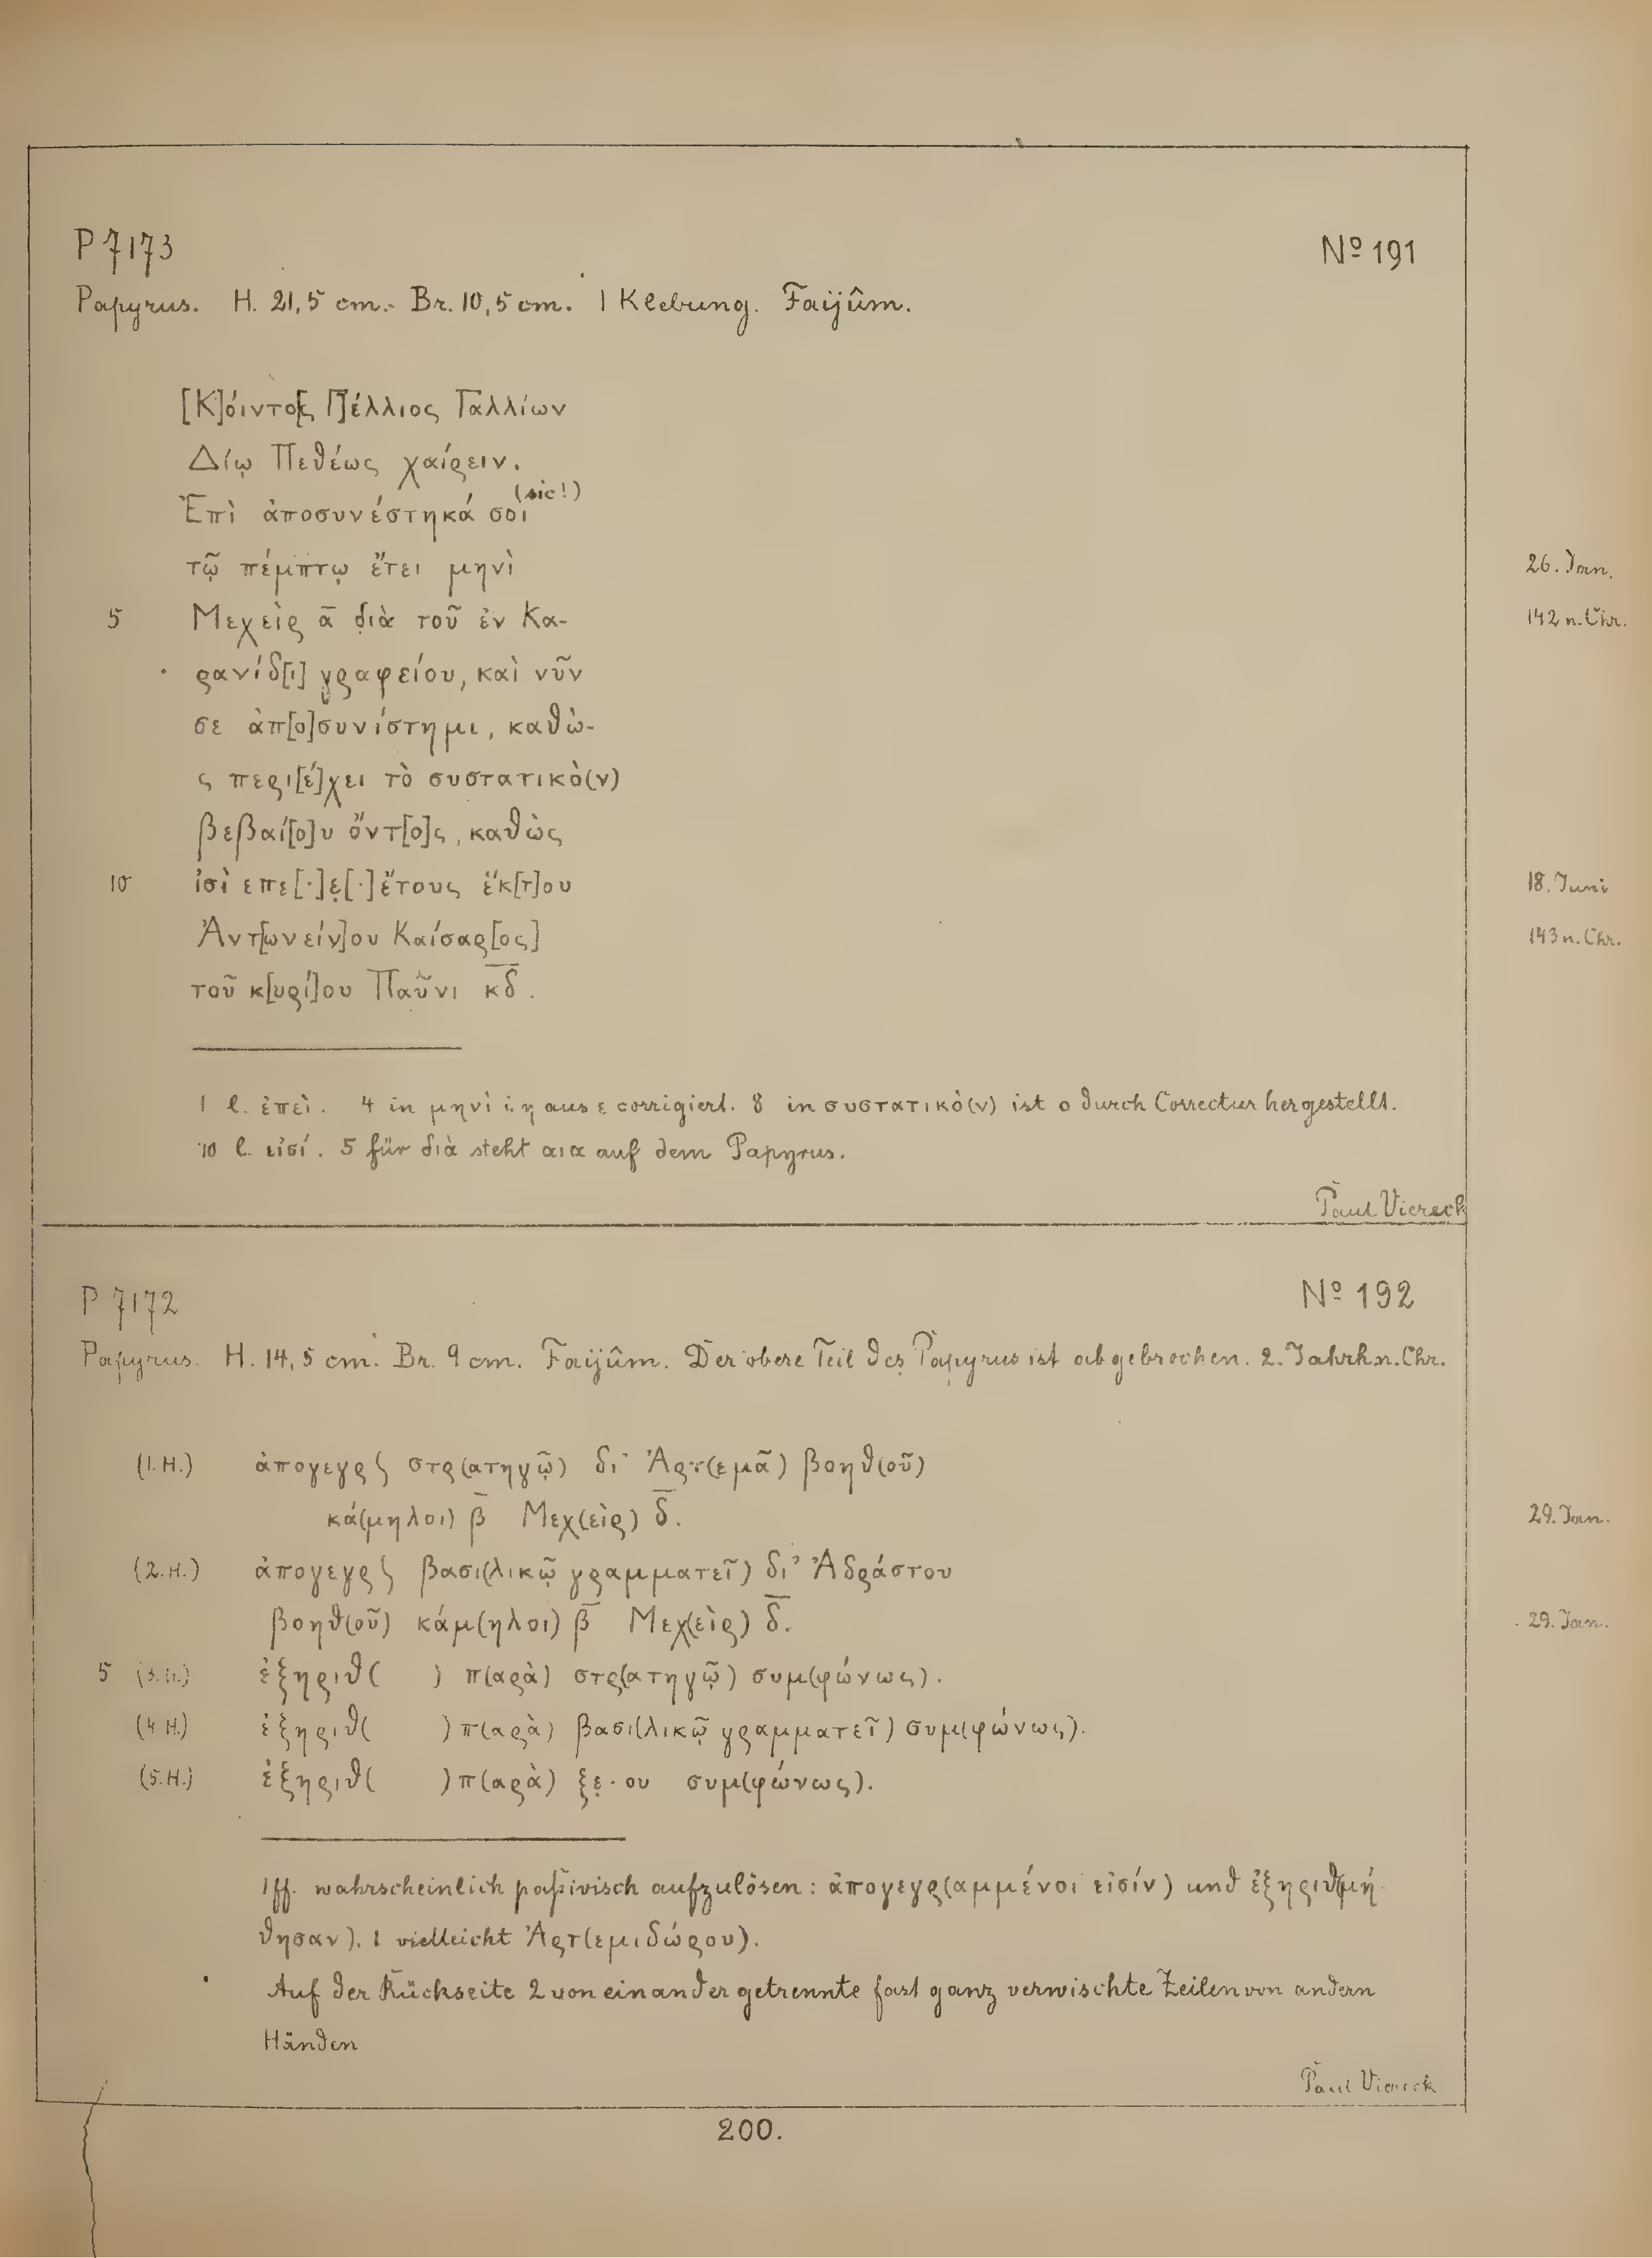 P 7173 Nº 191
Papyrus. H. 21,5 cm.- Br. 10,5 cm. 1 Klebung. Faijûm.
[Κ]όιντο[ς Γ]έλλιος Γαλλίων
Δίῳ Πεθέως χαίρειν.
Ἐπὶ ἀποσυνέστηκά σοι (sic!)
τῷ πέμπτῳ ἔτει μηνὶ 26. Jan.
5 Μεχεὶρ ᾱ διὰ τοῦ ἐν Κα- 142 n. Chr.
ρανίδ[ι] γραφείου, καὶ νῦν
σε ἀπ[ο]συνίστημι, καθὼ-
ς περι[έ]χει τὸ συστατικὸ(ν)
βεβαί[ο]υ ὄντ[ο]ς, καθὼς
10 ἰσὶ επε[·]ε̣[·]ἔτους ἕκ[τ]ου 18. Juni
Ἀντ[ωνείν]ου Καίσαρ[ος] 143 n. Chr.
τοῦ κ[υρί]ου Παῦνι κ̅δ̅.
1 l. ἐπεὶ. 4 in μηνὶ i. η aus ε corrigiert. 8 in συστατικὸ(ν) ist ο durch Correctur hergestellt.
10 l. εἰσί. 5 für διὰ steht αια auf dem Papyrus.
Paul Viereck
P 7172 Nº 192
Papyrus. H. 14,5 cm. Br. 9 cm. Faijûm. Der obere Teil des Papyrus ist abgebrochen. 2. Jahrh. n. Chr.
(1. H.) ἀπογεγρ⟆ στρ(ατηγῷ) δι' Ἀρτ(εμᾶ) βοηθ(οῦ)
κά(μηλοι) β̅ Μεχ(εὶρ) δ̅. 29. Jan.
(2. H.) ἀπογεγρ⟆ βασι(λικῷ γραμματεῖ) δι' Ἀδράστου
βοηθ(οῦ) κάμ(ηλοι) β̅ Μεχ(εὶρ) δ̅. 29. Jan.
5 (3. H.) ἐξηριθ( ) π(αρὰ) στρ(ατηγῷ) συμ(φώνως).
(4 H.) ἐξηριθ( ) π(αρὰ) βασι(λικῷ γραμματεῖ) συμ(φώνως).
(5. H.) ἐξηριθ( ) π(αρὰ) ξε̣·ου συμ(φώνως).
1 ff. wahrscheinlich paßivisch aufzulösen: ἀπογεγρ(αμμένοι εἰσίν) und ἐξηριθ(μή-
θησαν). 1 vielleicht Ἀρτ(εμιδώρου).
Auf der Rückseite 2 von einander getrennte fast ganz verwischte Zeilen von andern
Händen
Paul Viereck
200.